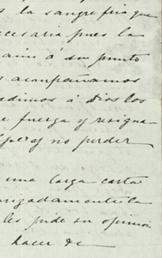 s la sangre fria que
cesaria pues la
aini á su punto
s acompañamos
edimos á Dios los
e fuerza y resigna-
lpe y no perder
una larga carta
rigadamente la
les pide su opinion
hacer de